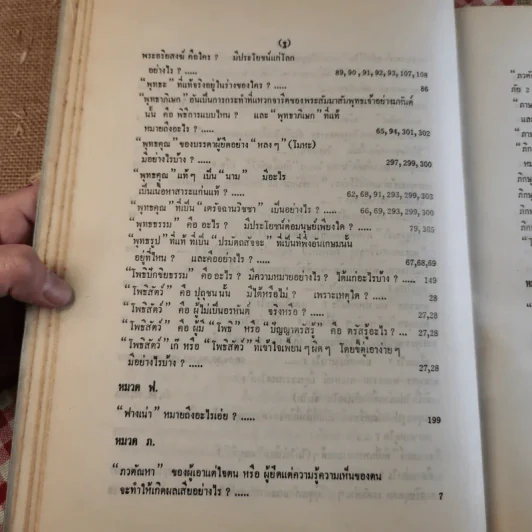 (ฐ)
พระอริยสงฆ์ คือใคร ? มีประโยชน์แก่โลก
อย่างไร ? ..... 89,90,91,92,93,107,108
"พุทธะ" ที่แท้จริงอยู่ในร่างของใคร ? ..... 86
"พุทธาภิเษก" อันเป็นการกระทำที่แหวกจารีตของพระสัมมาสัมพุทธเจ้าอย่างมหันต์
นั้น คือ พิธีการแบบไหน ? และ "พุทธาภิเษก" ที่แท้
หมายถึงอะไร ? ..... 65,94,301,302
"พุทธคุณ" ของบรรดาผู้ยึดอย่าง "หลงๆ" (โมหะ)
มีอย่างไรบ้าง ? ..... 297,299,300
"พุทธคุณ" แท้ๆ เป็น "นาม" มีอะไร
เป็นเนื้อหาสาระแก่นแท้ ? ..... 62,68,91,293,299,303
"พุทธคุณ" ที่เป็น "เดรัจฉานวิชชา" เป็นอย่างไร ? ..... 66,69,293,299,300
"พุทธธรรม" คือ อะไร ? มีประโยชน์ต่อมนุษย์เพียงใด ? ..... 79,305
"พุทธรูป" ที่แท้ ที่เป็น "ปรมัตถสัจจะ" ที่เป็นที่พึ่งอันเกษมนั้น
อยู่ที่ไหน ? และคืออย่างไร ? ..... 67,68,69
"โพธิปักขิยธรรม" คือ อะไร ? มีความหมายอย่างไร ? ได้แก่อะไรบ้าง ? ..... 149
"โพธิสัตว์" คือ ปุถุชนนั้น มีได้หรือไม่ ? เพราะเหตุใด ? ..... 28
"โพธิสัตว์" คือ ผู้ไม่เป็นอรหันต์ จริงหรือ ? ..... 27,28
"โพธิสัตว์" คือ ผู้มี "โพธิ" หรือ "ปัญญาตรัสรู้" คือ ตรัสรู้อะไร ? ... 27,28
"โพธิสัตว์" เก๊ หรือ "โพธิสัตว์" ที่เข้าใจเพี้ยนๆ ผิดๆ โดยขี้ตู่เอาง่ายๆ
มีอย่างไรบ้าง ? ..... 27,28
หมวด ฟ.
"ฟางเน่า" หมายถึงอะไรเอ่ย ? ..... 199
หมวด ภ.
"ภวตัณหา" ของผู้เอาแต่ใจตน หรือ ผู้ยึดแต่ความรู้ความเห็นของตน
จะทำให้เกิดผลเสียอย่างไร ? ..... 7
"ภวตั
ภัย 2